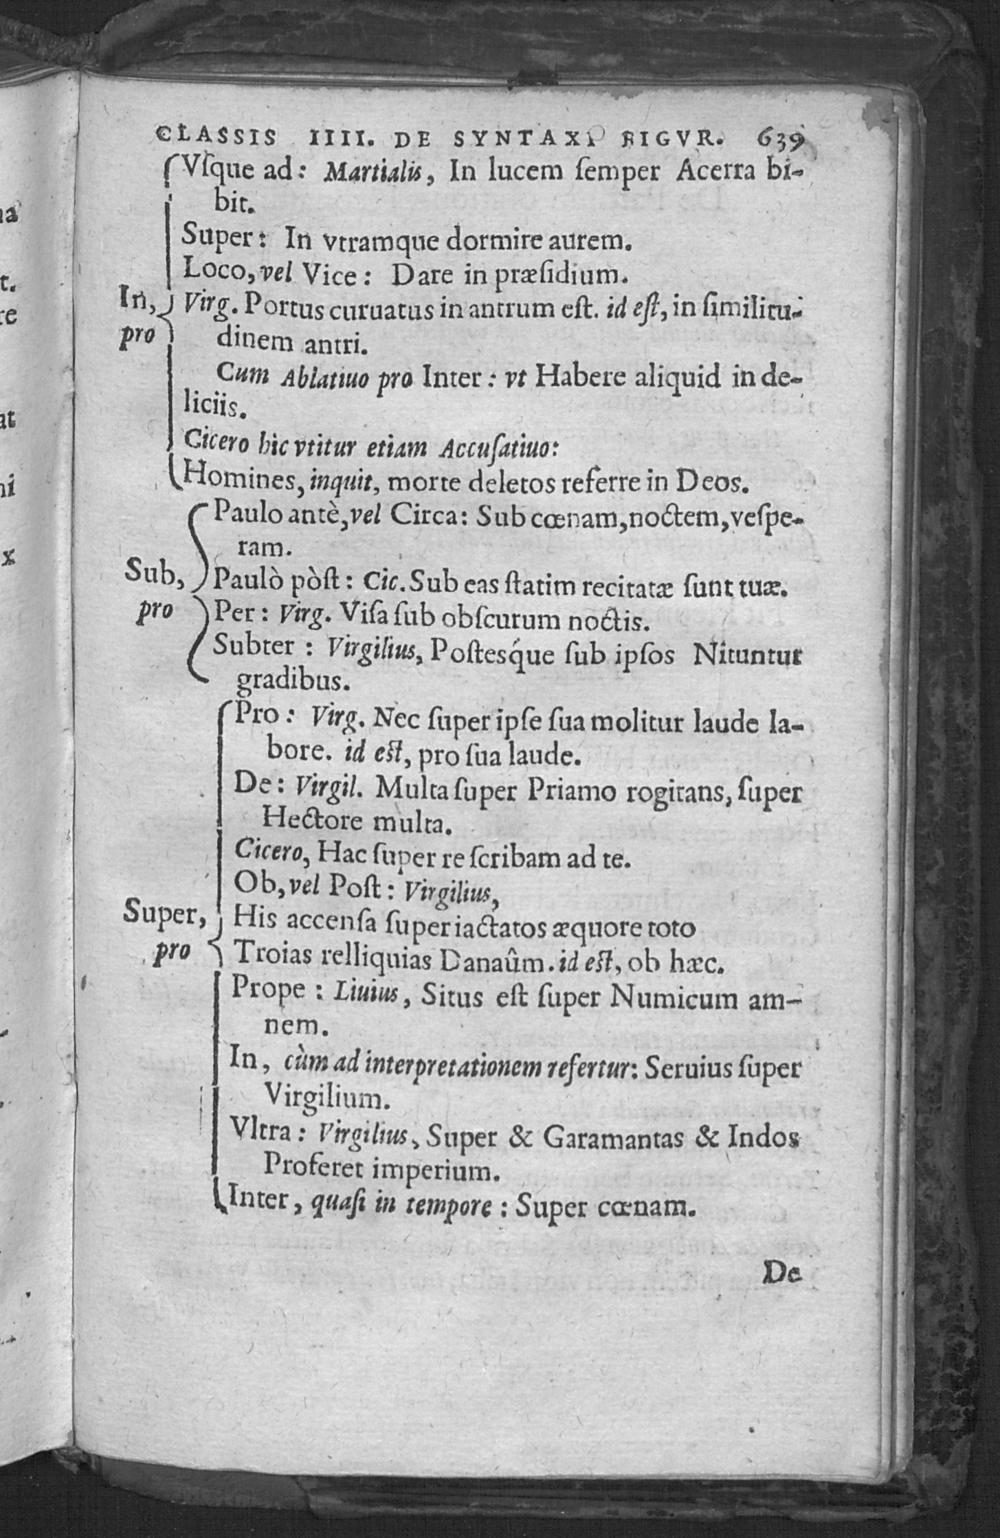 CLASSIS IIII. DE SYNTAXI FIGVR. 639
Vſque ad: Martialis, In lucem ſemper Acerra bi-
bit.
Super: In vtramque dormire aurem.
Loco, vel Vice: Dare in præſidium.
In, pro
Virg. Portus curuatus in antrum eſt. id eſt, in ſimilitu-
dinem antri.
Cum Ablatiuo pro Inter: vt Habere aliquid in de-
liciis.
Cicero hic vtitur etiam Accuſatiuo:
Homines, inquit, morte deletos referre in Deos.
Sub, pro
Paulo antè, vel Circa: Sub cœnam, noctem, veſpe-
ram.
Paulò pòſt: Cic. Sub eas ſtatim recitatæ ſunt tuæ.
Per: Virg. Viſa ſub obſcurum noctis.
Subter: Virgilius, Poſteſque ſub ipſos Nituntur
gradibus.
Super, pro
Pro: Virg. Nec ſuper ipſe ſua molitur laude la-
bore. id eſt, pro ſua laude.
De: Virgil. Multa ſuper Priamo rogitans, ſuper
Hectore multa.
Cicero, Hac ſuper re ſcribam ad te.
Ob, vel Poſt: Virgilius,
His accenſa ſuper iactatos æquore toto
Troias relliquias Danaûm. id eſt, ob hæc.
Prope: Liuius, Situs eſt ſuper Numicum am-
nem.
In, cùm ad interpretationem refertur: Seruius ſuper
Virgilium.
Vltra: Virgilius, Super & Garamantas & Indos
Proferet imperium.
Inter, quaſi in tempore: Super cœnam.
De